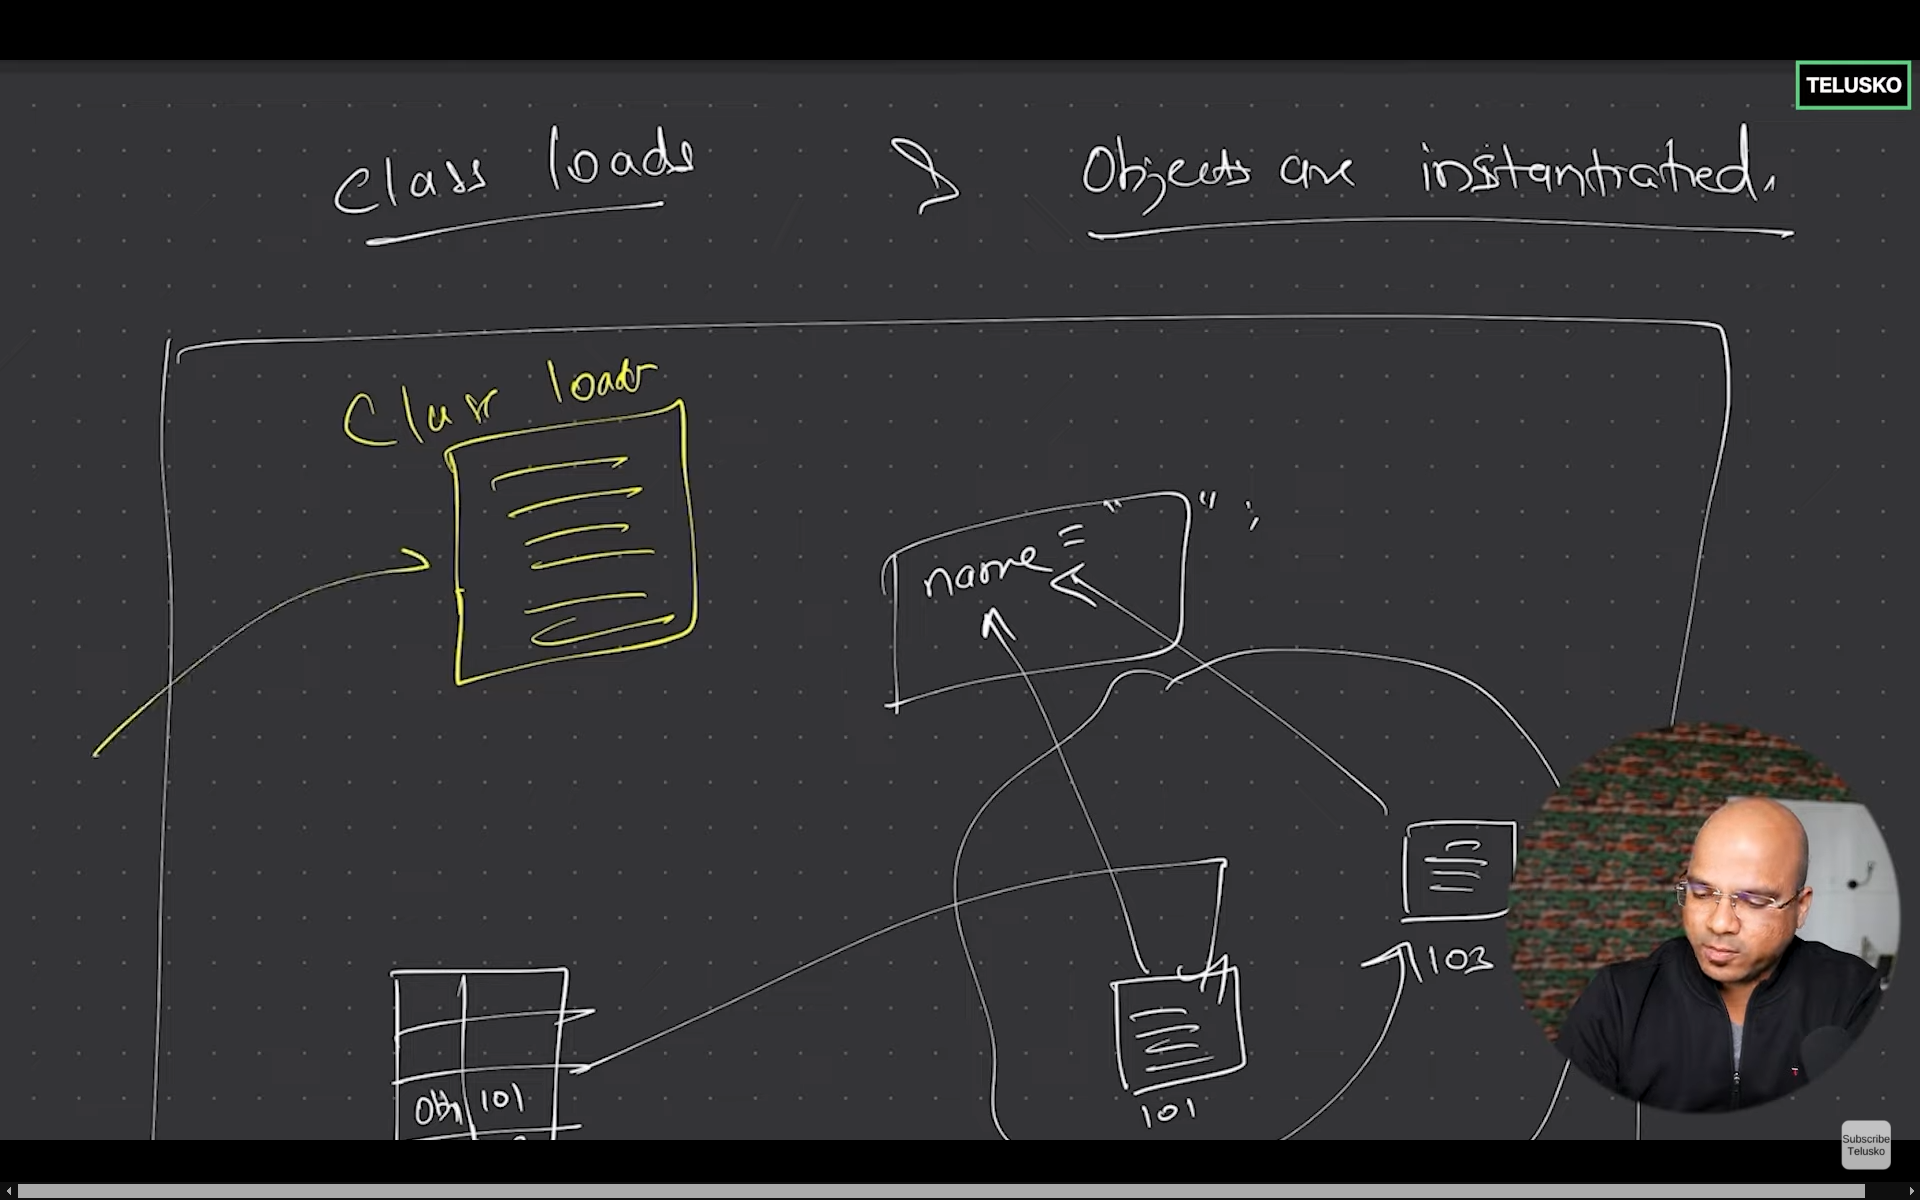 TELUSKO
Class loads & Objects are instantiated.
Class loadr
name = " " ;
103
Obj 101
101
Subscribe
Telusko